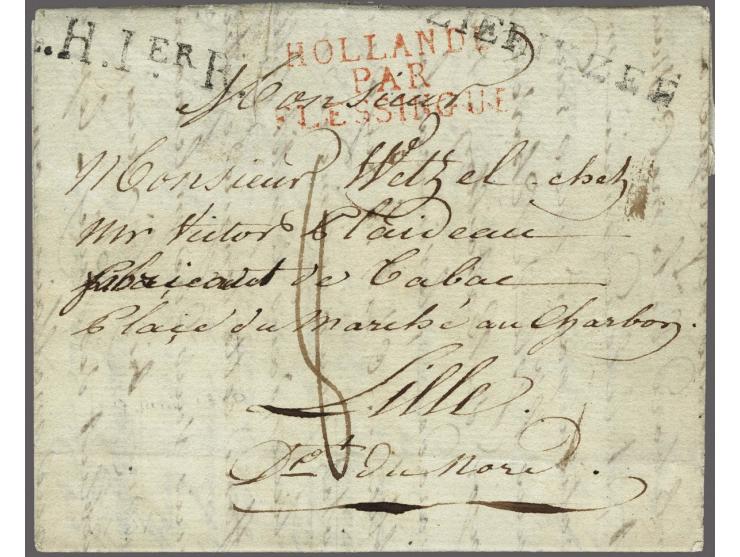 L.H.1ERR
HOLLANDE
PAR
FLESSINGUE
ZIERIKZEE
Monsieur
Monsieur Wetzel chez
Mr Victor Plaideau
fabricant de Tabac
Plaçe du Marché au Charbon.
Lille.
Det du Nord.